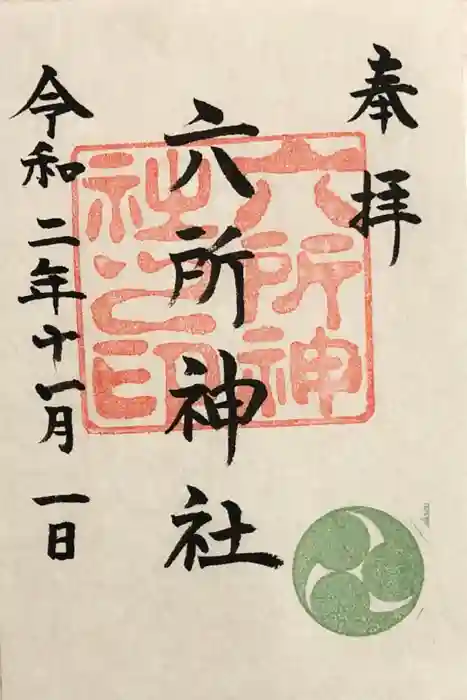 奉拝
六所神社
六所神
社之印
令和二年十一月一日